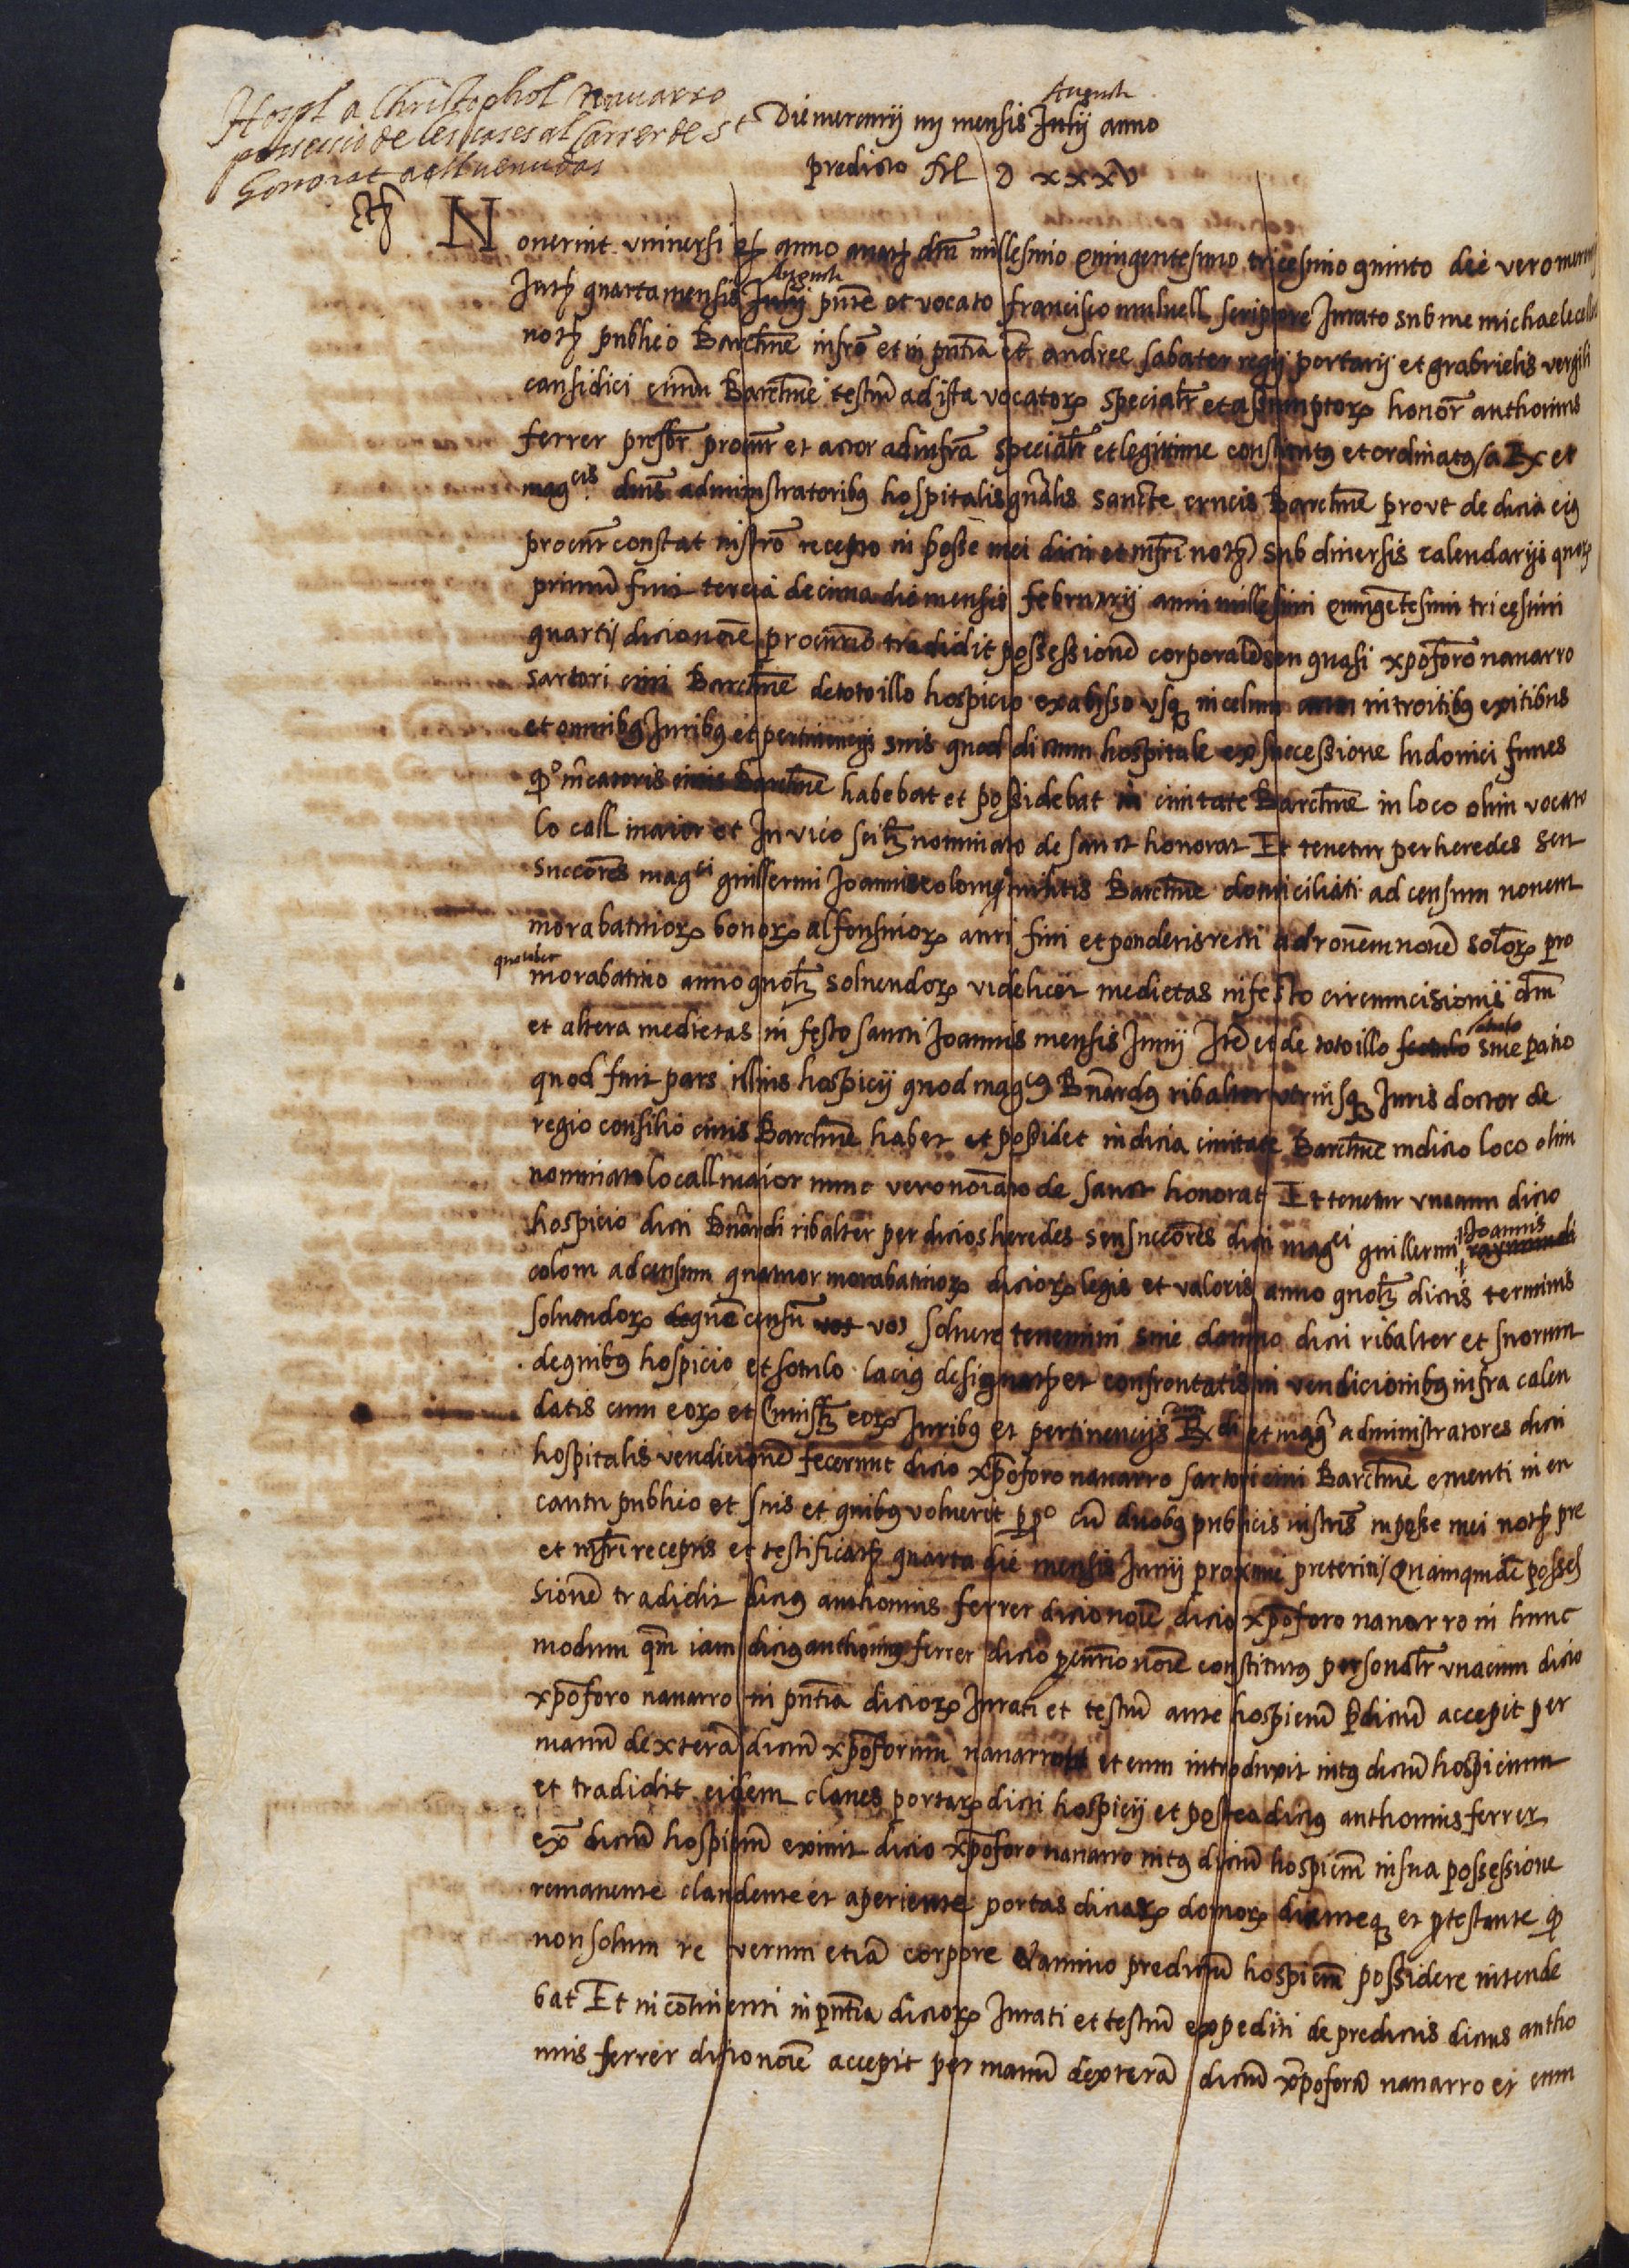 Hospl a Christophol Nauarro
possessio de les cases al Carrer de St
Honorat
Die mercurij iiij mensis Julij anno
Augusti
predicto M D xxxv
Nouerint vniuersi qd anno a natte dni millesimo quingentesimo tricesimo quinto die vero mercurij
Augusti
Intte quarta mensis Julij pnte et vocato francisco mulnell scriptore Jurato sub me michaele
notº publico Barchne infro et in pntia et andree sabater regij portarij et grabrielis vergili
causidici ciuiu Barchne testiu ad ista vocatorȝ specialr et assumptorȝ honor anthonius
ferrer prsbr procur et actor ad infra specialr et legitime constitutȝ et ordinatȝ / a Rx et
magcis dnis administratoribȝ hospitalis gnalis sancte crucis Barchne prout de dicta eiȝ
procur constat instro recepto in posse mei dicti et infri notº sub diuersis calendarijs quorȝ
primu fuit tercia decima die mensis februarij anni millesimi quingetesimi tricesimi
quarti / dicto noie procurio tradidit possessione corporale seu quasi xpoforo nauarro
sartori ciui Barchne de toto illo hospicio ex abisso vsqȝ in celum cum introitibȝ exitibus
et omnibȝ Juribȝ et pertinencijs suis quod dictum hospitale ex successione ludouici funes
qº mcatoris ciuis Barchne habebat et possidebat in ciuitate Barchne in loco olim vocato
lo call maior et In vico scilȝ nominato de sanct honorat Et tenetur per heredes seu
succores magci guillermi Joannis colom militis Barchne domiciliati ad censum nouem
morabatinorȝ bonorȝ alfonsinorȝ auri fini et ponderis recti ad ronem noue solorȝ pro
quolibet
morabatino anno quolȝ soluendorȝ videlicet medietas in festo circumcisionis dni
et altera medietas in festo sancti Joannis mensis Junij Ite et de toto illo siue patio
quod fuit pars illius hospicij quod magcȝ Bnardȝ ribalter vtriusqȝ Juris doctor de
regio consilio ciuis Barchne habet et possidet in dicta ciuitate Barchne in dicto loco olim
nominato lo call maior nunc vero noiato de sanct honorat Et tenetur vnacum dicto
hospicio dicti Bnardi ribalter per dictos heredes seu succores dicti magci guillermi raymundi
Joannis
colom ad censum quatuor morabatinorȝ dictorȝ legis et valoris anno quolȝ dictis terminis
soluendorȝ de que censu vos vos soluere tenemini sine damno dicti ribalter et suorum
de quibȝ hospicio et sotulo laciȝ designatº et confrontatis in vendicionibȝ infra calen
datis cum eorȝ et cuiuslȝ eorȝ Juribȝ et pertinencijs Rx di et magci administratores dicti
hospitalis vendicione fecerunt dicto xpoforo nauarro sartori ciui Barchne ementi in en
cantu publico et suis et quibȝ voluerit ppº cu duobȝ publicis instris in posse mei notº pre
et infri receptis et testificatº quarta die mensis Junij proxime preteriti / Quamquide posses
sione tradidit dictȝ anthonius ferrer dicto noie dicto xpoforo nauarro in hunc
modum qm iam dictȝ anthoniȝ ferrer dicto pcurrio noie constitutȝ personalr vnacum dicto
xpoforo nauarro in pntia dictorȝ Jurati et testiu ante hospiciu pdictu accepit per
manu dextera dictu xpoforum nauarro et eum introduxit intȝ dictu hospicium
et tradidit eidem claues portarȝ dicti hospicij et postea dictȝ anthonius ferrer
ex dictu hospiciu exiuit dicto xpoforo nauarro intȝ dictu hospicium in sua possessione
remanente claudente et aperiente portas dictarȝ domorȝ dicenteqȝ et protestante qȝ
non solum re verum etia corpore & animo predictu hospicium possidere intende
bat Et in cotinenti in pntia dictorȝ Jurati et testiu expediti de predictis dictus antho
nius ferrer dicto noie accepit per manu dextera dictu xpoforu nauarro et eum